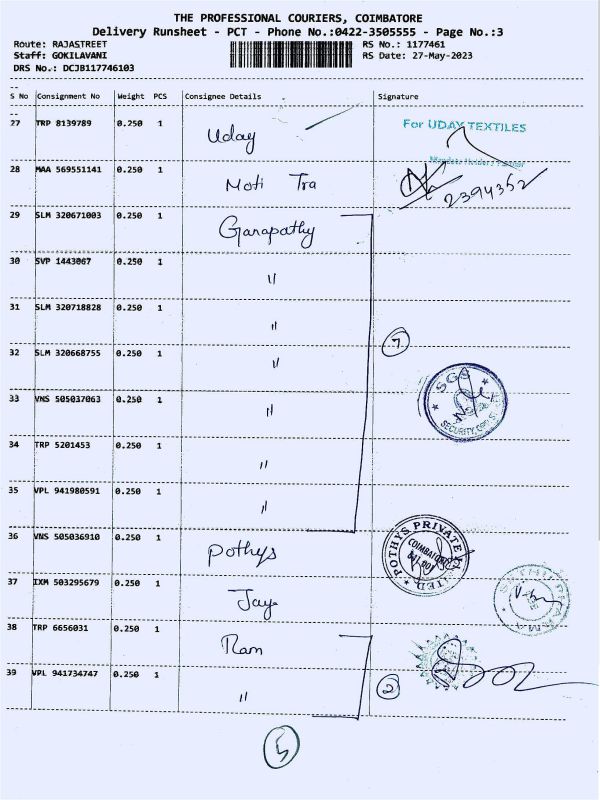 THE PROFESSIONAL COURIERS, COIMBATORE
Delivery Runsheet - PCT - Phone No.:0422-3505555 - Page No.:3
Route: RAJASTREET RS No.: 1177461
Staff: GOKILAVANI RS Date: 27-May-2023
DRS No.: DCJB117746103
S No Consignment No Weight PCS Consignee Details Signature
27 TRP 8139789 0.250 1 Uday For UDAY TEXTILES
28 MAA 569551141 0.250 1 Moti Tra 2394352
29 SLM 320671003 0.250 1 Ganapathy
30 SVP 1443067 0.250 1 "
31 SLM 320718828 0.250 1 "
32 SLM 320668755 0.250 1 " 7
33 VNS 505037063 0.250 1 " SGS SECURITY
34 TRP 5201453 0.250 1 "
35 VPL 941980591 0.250 1 "
36 VNS 505036910 0.250 1 Pothys POTHYS PRIVATE LIMITED COIMBATORE
37 IXM 503295679 0.250 1 Jay
38 TRP 6656031 0.250 1 Ram
39 VPL 941734747 0.250 1 " 2
5